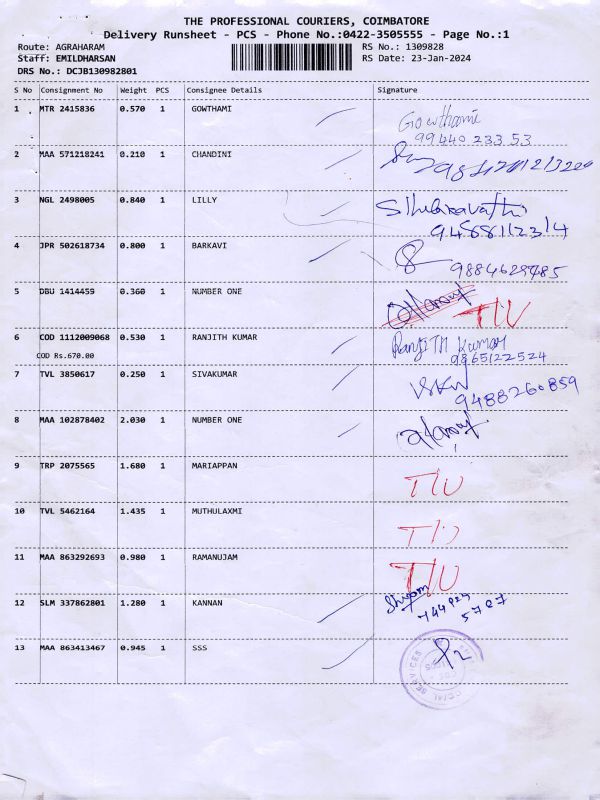 THE PROFESSIONAL COURIERS, COIMBATORE
Delivery Runsheet - PCS - Phone No.:0422-3505555 - Page No.:1
Route: AGRAHARAM RS No.: 1309828
Staff: EMILDHARSAN RS Date: 23-Jan-2024
DRS No.: DCJB130982801
S No Consignment No Weight PCS Consignee Details Signature
1 MTR 2415836 0.570 1 GOWTHAMI Gowthami
99440 233 53
2 MAA 571218241 0.210 1 CHANDINI
3 NGL 2498005 0.840 1 LILLY
4 JPR 502618734 0.800 1 BARKAVI
5 DBU 1414459 0.360 1 NUMBER ONE T/U
6 COD 1112009068 0.530 1 RANJITH KUMAR Ranjith Kumar
COD Rs.670.00 9865122524
7 TVL 3850617 0.250 1 SIVAKUMAR
9488260859
8 MAA 102878402 2.030 1 NUMBER ONE
9 TRP 2075565 1.680 1 MARIAPPAN T/U
10 TVL 5462164 1.435 1 MUTHULAXMI T/U
11 MAA 863292693 0.980 1 RAMANUJAM T/U
12 SLM 337862801 1.280 1 KANNAN Shyam
13 MAA 863413467 0.945 1 SSS